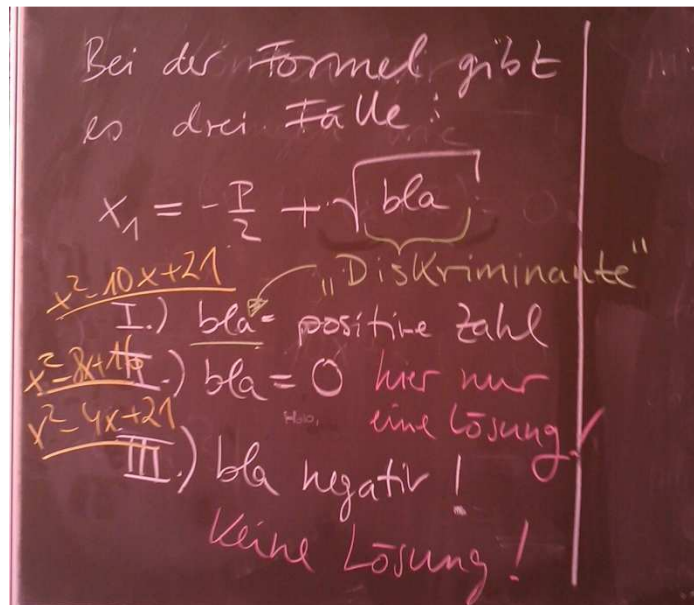 Bei der Formel gibt
es drei Fälle:
x₁ = -p/2 + √bla
"Diskriminante"
x²-10x+21
I.) bla = positive Zahl
x²-8x+16
II.) bla = 0 hier nur
eine Lösung!
x²-4x+21
III.) bla negativ!
Keine Lösung!